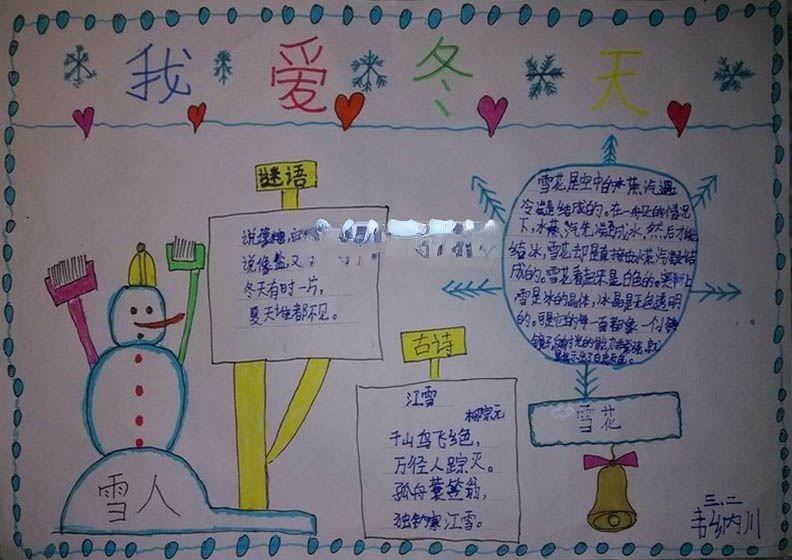 我爱冬天
谜语
说像糖,
说像盐,又
冬天有时一片,
夏天谁都不见。
古诗
江雪
柳宗元
千山鸟飞绝,
万径人踪灭。
孤舟蓑笠翁,
独钓寒江雪。
雪花是空中的水蒸汽遇
冷凝结成的。在一般的情况
下,水蒸汽先凝成水,然后才能
结冰,雪花却是直接由水蒸汽凝结
成的。雪花看起来是白色的。实际上
雪是冰的晶体,冰晶是无色透明
的。可是它的每一面都像一个小镜
雪花
雪人
三.二